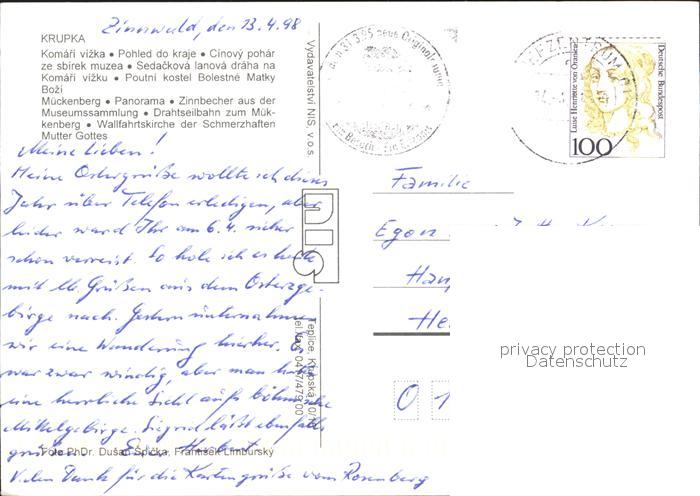 Zinnwald, den 13.4.98
KRUPKA
Komáří vížka • Pohled do kraje • Cínový pohár
ze sbírek muzea • Sedačková lanová dráha na
Komáří vížku • Poutní kostel Bolestné Matky
Boží
Mückenberg • Panorama • Zinnbecher aus der
Museumssammlung • Drahtseilbahn zum Mük-
kenberg • Wallfahrtskirche der Schmerzhaften
Mutter Gottes
Meine Lieben!
Meine Ostergrüße wollte ich dieses
Jahr über Telefon erledigen, aber
leider ward Ihr am 6.4. sicher
schon verreist. So hole ich es heute
mit lb. Grüßen aus dem Osterzge-
birge nach. Gestern unternahmen
wir eine Wanderung hierher. Es
war zwar windig, aber man hatte
eine herrliche Sicht aufs böhmische
Mittelgebirge. Sigrid läßt ebenfalls
grüßen. Euer Herbert
Foto PhDr. Dušan Špička, František Limburský
Vielen Dank für die Kartengrüße vom Rosenberg
Vydavatelství NIS, v.o.s.
nis
Teplice, Krupská
Luise Henriette von Oranien
Deutsche Bundespost
100
Familie
Egon
Ham
He
01
privacy protection
Datenschutz